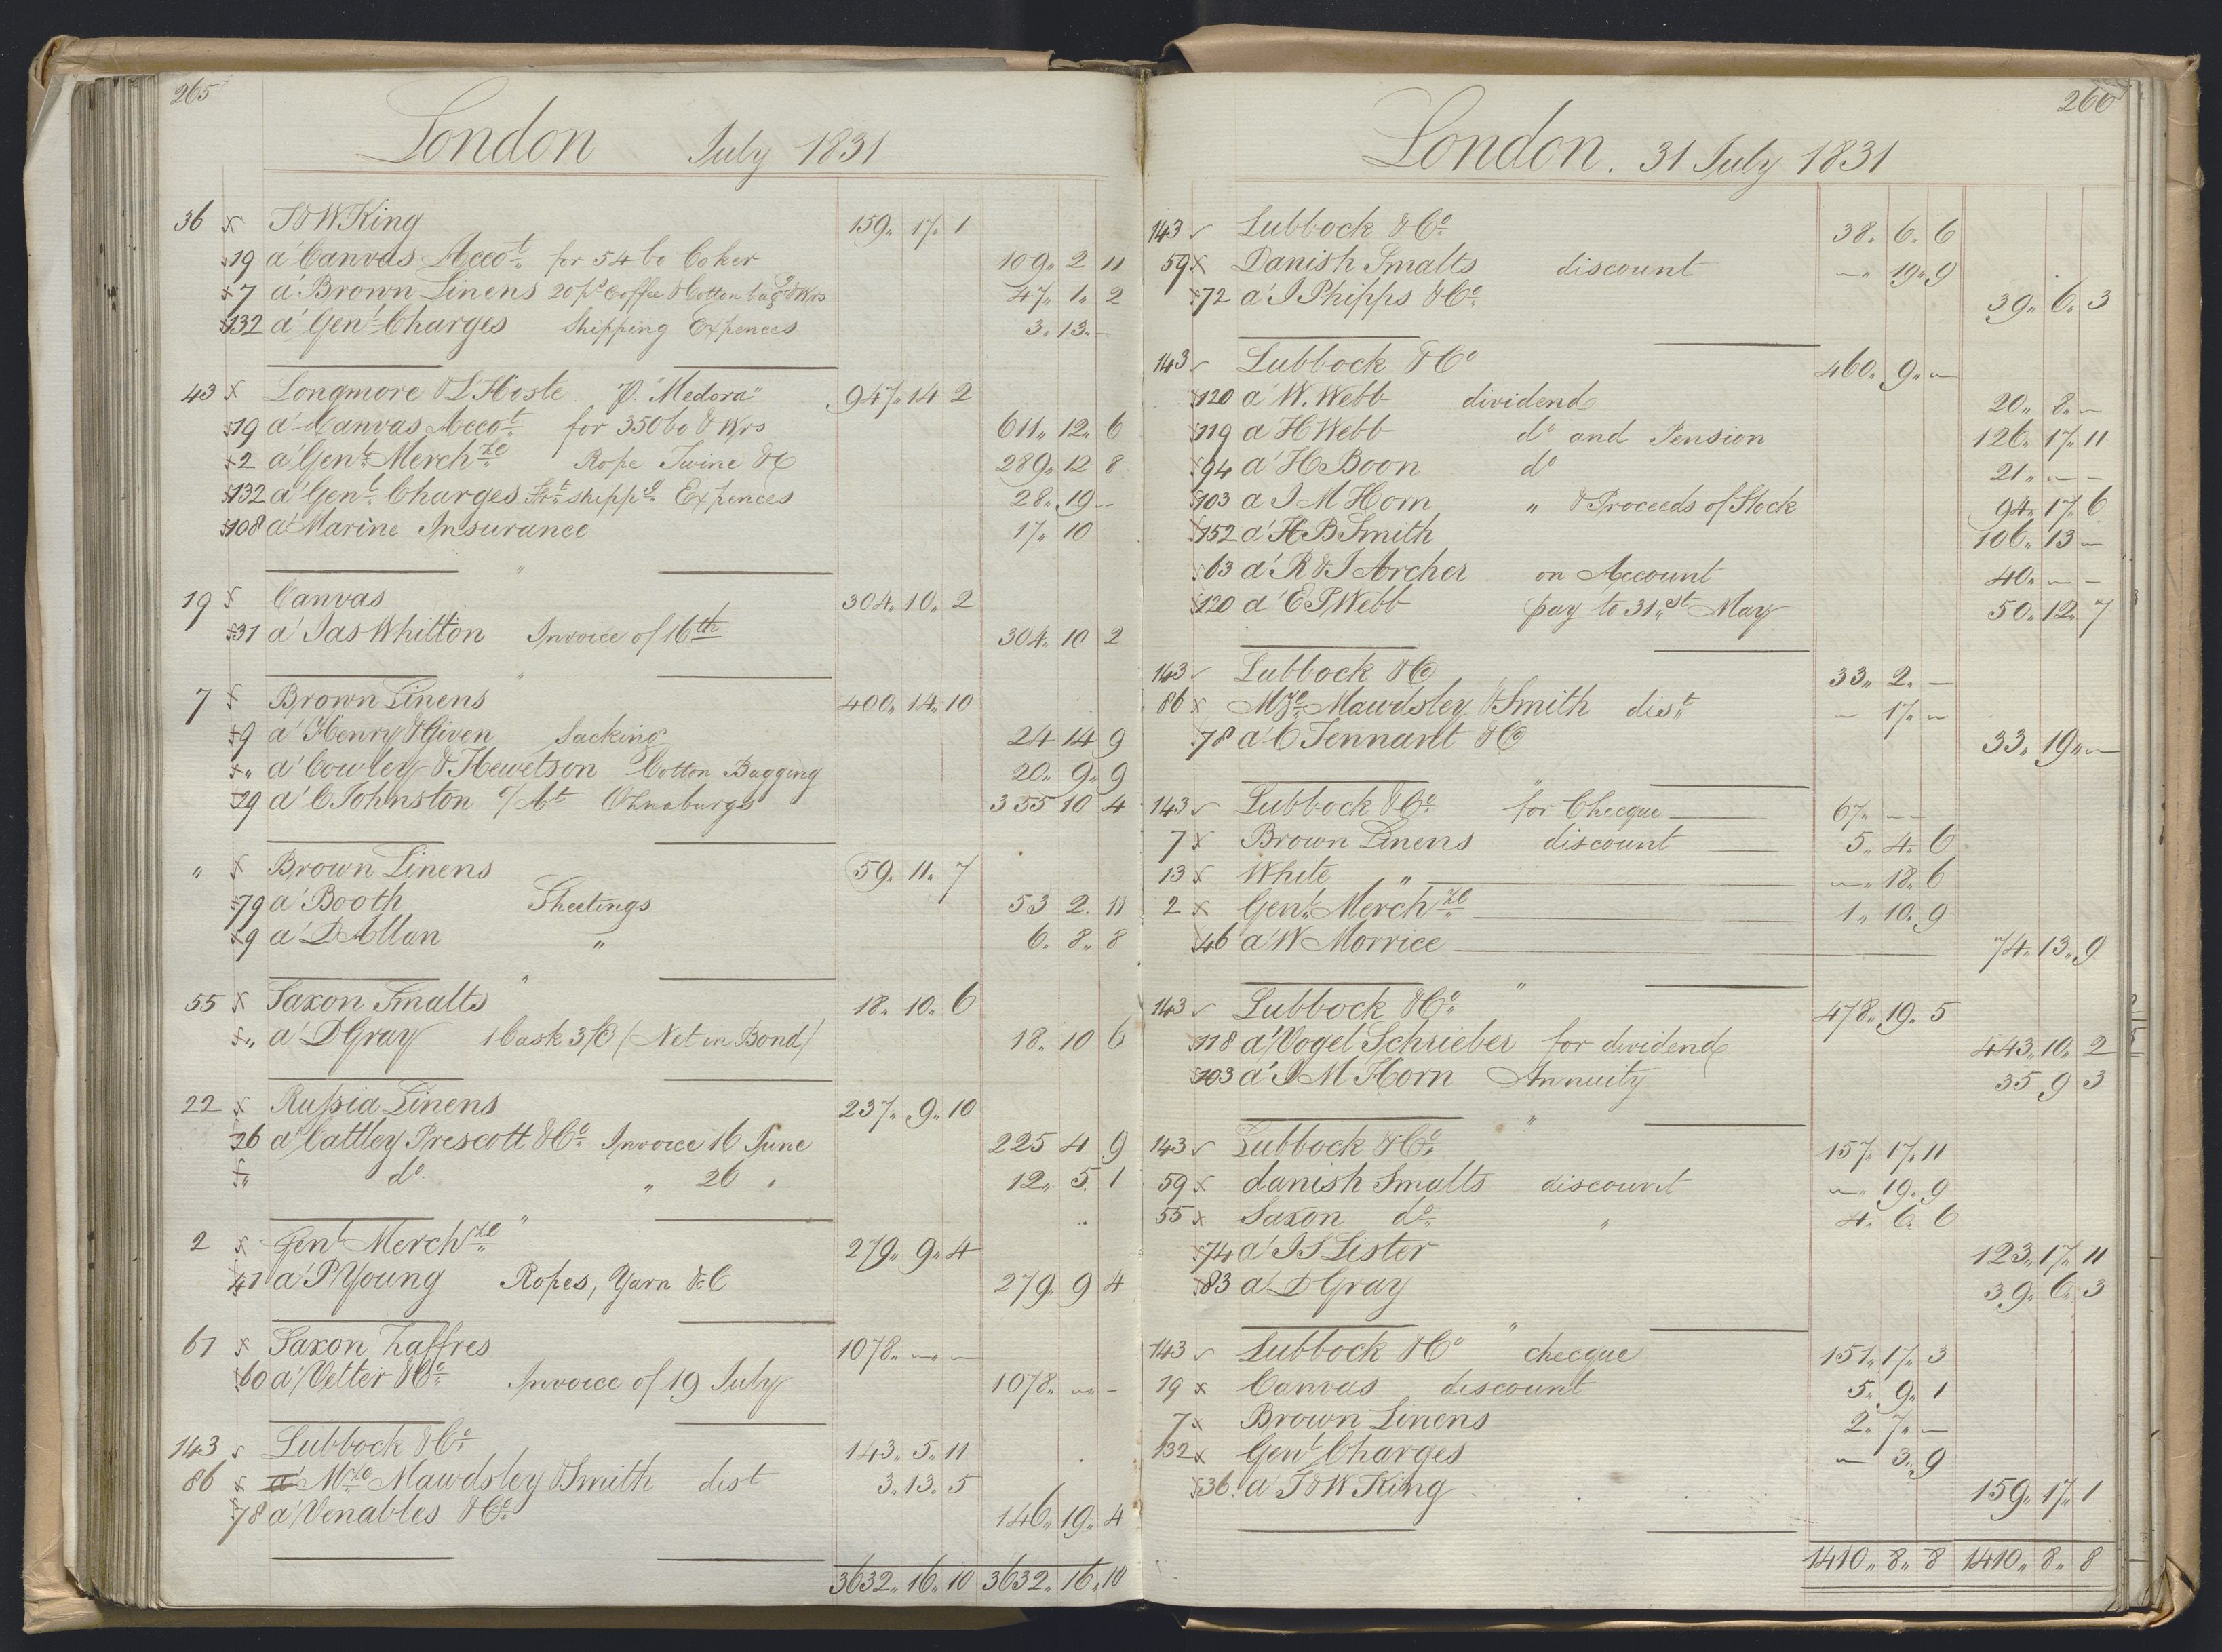 265
London July 1831
36 x T & W King 159 " 17 " 1
x 19 a' Canvas Accot for 54 bo Coker 109 " 2 11
x 7 a' Brown Linens 20 ps Coffee & Cotton bagg & Wrs 47 " 1 " 2
x 132 a' Genl Charges Shipping Expences 3 " 13 " -
43 x Longmore & L'Hosle P. "Medora" 947 " 14 2
x 19 a' Canvas Accot for 350 bo & Wrs 611 " 12 " 6
x 2 a' Genl Merchze Rope Twine &c 289 " 12 8
x 132 a' Genl Charges Frt shippg Expences 28 " 19 -
x 108 a' Marine Insurance 17 " 10
19 x Canvas 304 " 10 " 2
x 31 a' Jas Whitton Invoice of 16th 304 " 10 2
7 x Brown Linens 400 " 14 " 10
x 9 a' Henry & Given Sacking 24 14 9
x " a' Cowley & Hewetson Cotton Bagging 20 " 9 " 9
29 a' C Johnston 355 10 4
" x Brown Linens 59 " 11 " 7
x 79 a' Booth Sheetings 53 2 " 11
x 9 a' D Allan " 6 " 8 " 8
55 x Saxon Smalts 18 " 10 " 6
x " a' D Gray 1 Cask (Net in Bond) 18 " 10 6
22 x Russia Linens 237 " 9 " 10
26 a' Cattley Prescott & Co Invoice 16 June 225 4 9
x " do " 26 " 12 " 5 " 1
2 x Genl Merchze 279 " 9 " 4
41 a' P Young Ropes, Yarn &c 279 " 9 4
61 x Saxon Zaffres 1078 " - " -
x 60 a' Vetter & Co Invoice of 19 July 1078 " - " -
143 ✓ Lubbock & Co 143 " 5 " 11
86 x a' Mze Mawdsley & Smith dist 3 " 13 " 5
78 a' Venables & Co 146 " 19 " 4
3632 " 16 " 10 3632 " 16 " 10
266
London. 31 July 1831
143 ✓ Lubbock & Co 38 " 6 " 6
59 x Danish Smalts discount - " 19 " 9
x 72 a' J Phipps & Co 39 " 6 " 3
143 ✓ Lubbock & Co 460 " 9 " -
x 120 a' W. Webb dividend 20 " 8 " -
x 119 a' H Webb do and Pension 126 " 17 " 11
x 94 a' H Boon do 21 " - -
x 103 a J M Horn " & Proceeds of Stock 94 " 17 " 6
x 152 a' H B Smith 106 " 13 -
x 63 a' R & J Archer on Account 40 " - -
x 120 a' E P Webb pay to 31st May 50 " 12 " 7
143 ✓ Lubbock & Co 33 " 2 " -
86 x Mze Mawdsley & Smith dist - 17 " -
x 78 a' C Tennant & Co 33 " 19 " -
143 ✓ Lubbock & Co for Checque 67 " - -
7 x Brown Linens discount 5 " 4 " 6
13 x White " - " 18 " 6
2 x Genl Merchze 1 " 10 " 9
x 46 a' W Morrice 74 " 13 " 9
143 ✓ Lubbock & Co 478 " 19 " 5
x 118 a' Vogel Schrieber for dividend 443 " 10 " 2
x 103 a' J M Horn Annuity 35 9 3
143 ✓ Lubbock & Co 157 " 17 " 11
59 x danish Smalts discount - " 19 " 9
55 x Saxon do " 4 " 6 " 6
x 74 a' J S Lister 123 " 17 " 11
x 83 a' D Gray 39 " 6 " 3
143 ✓ Lubbock & Co checque 151 " 17 " 3
19 x Canvas discount 5 " 9 " 1
7 x Brown Linens 2 " 7 " -
132 x Genl Charges - 3 " 9
x 36 a' T & W King 159 " 17 " 1
1410 " 8 " 8 1410 " 8 " 8